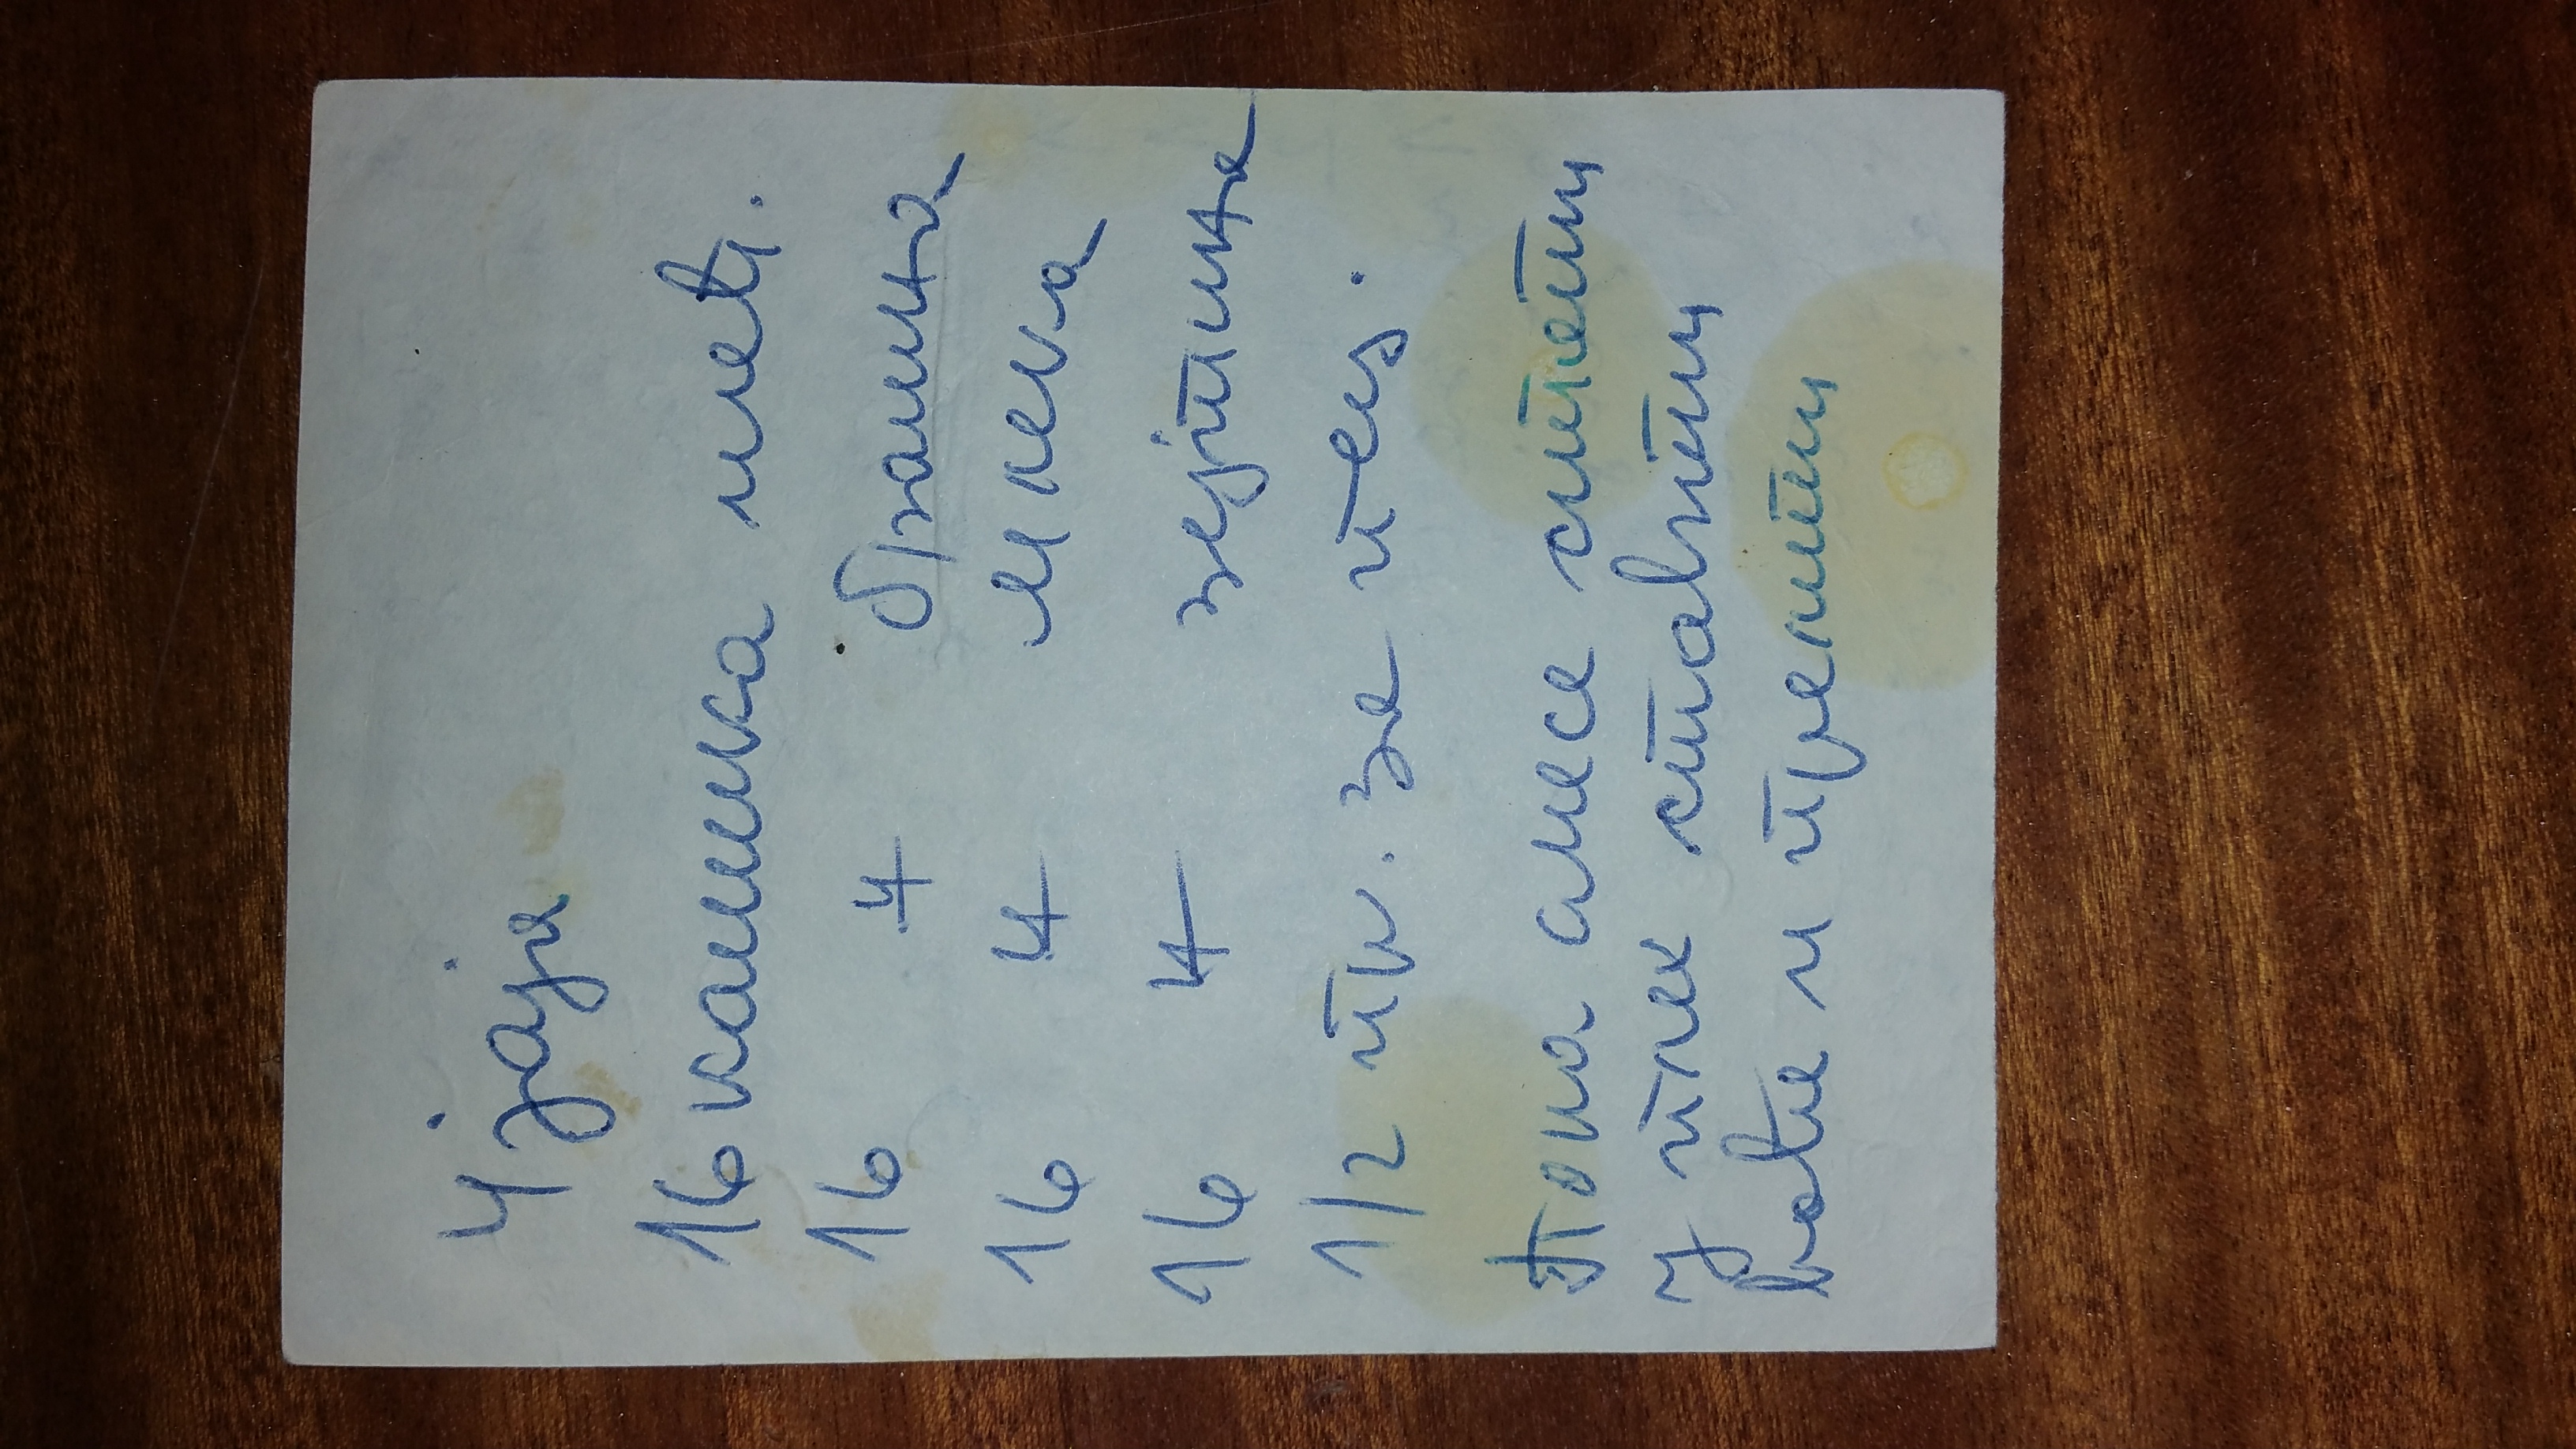 4 јаја
16 кашика шећ.
16 -"- брашна
16 -"- млека
16 -"- зејтина
1/2 пр. за пец.
Пола смесе сипати
у плех ставити
воће и прелити